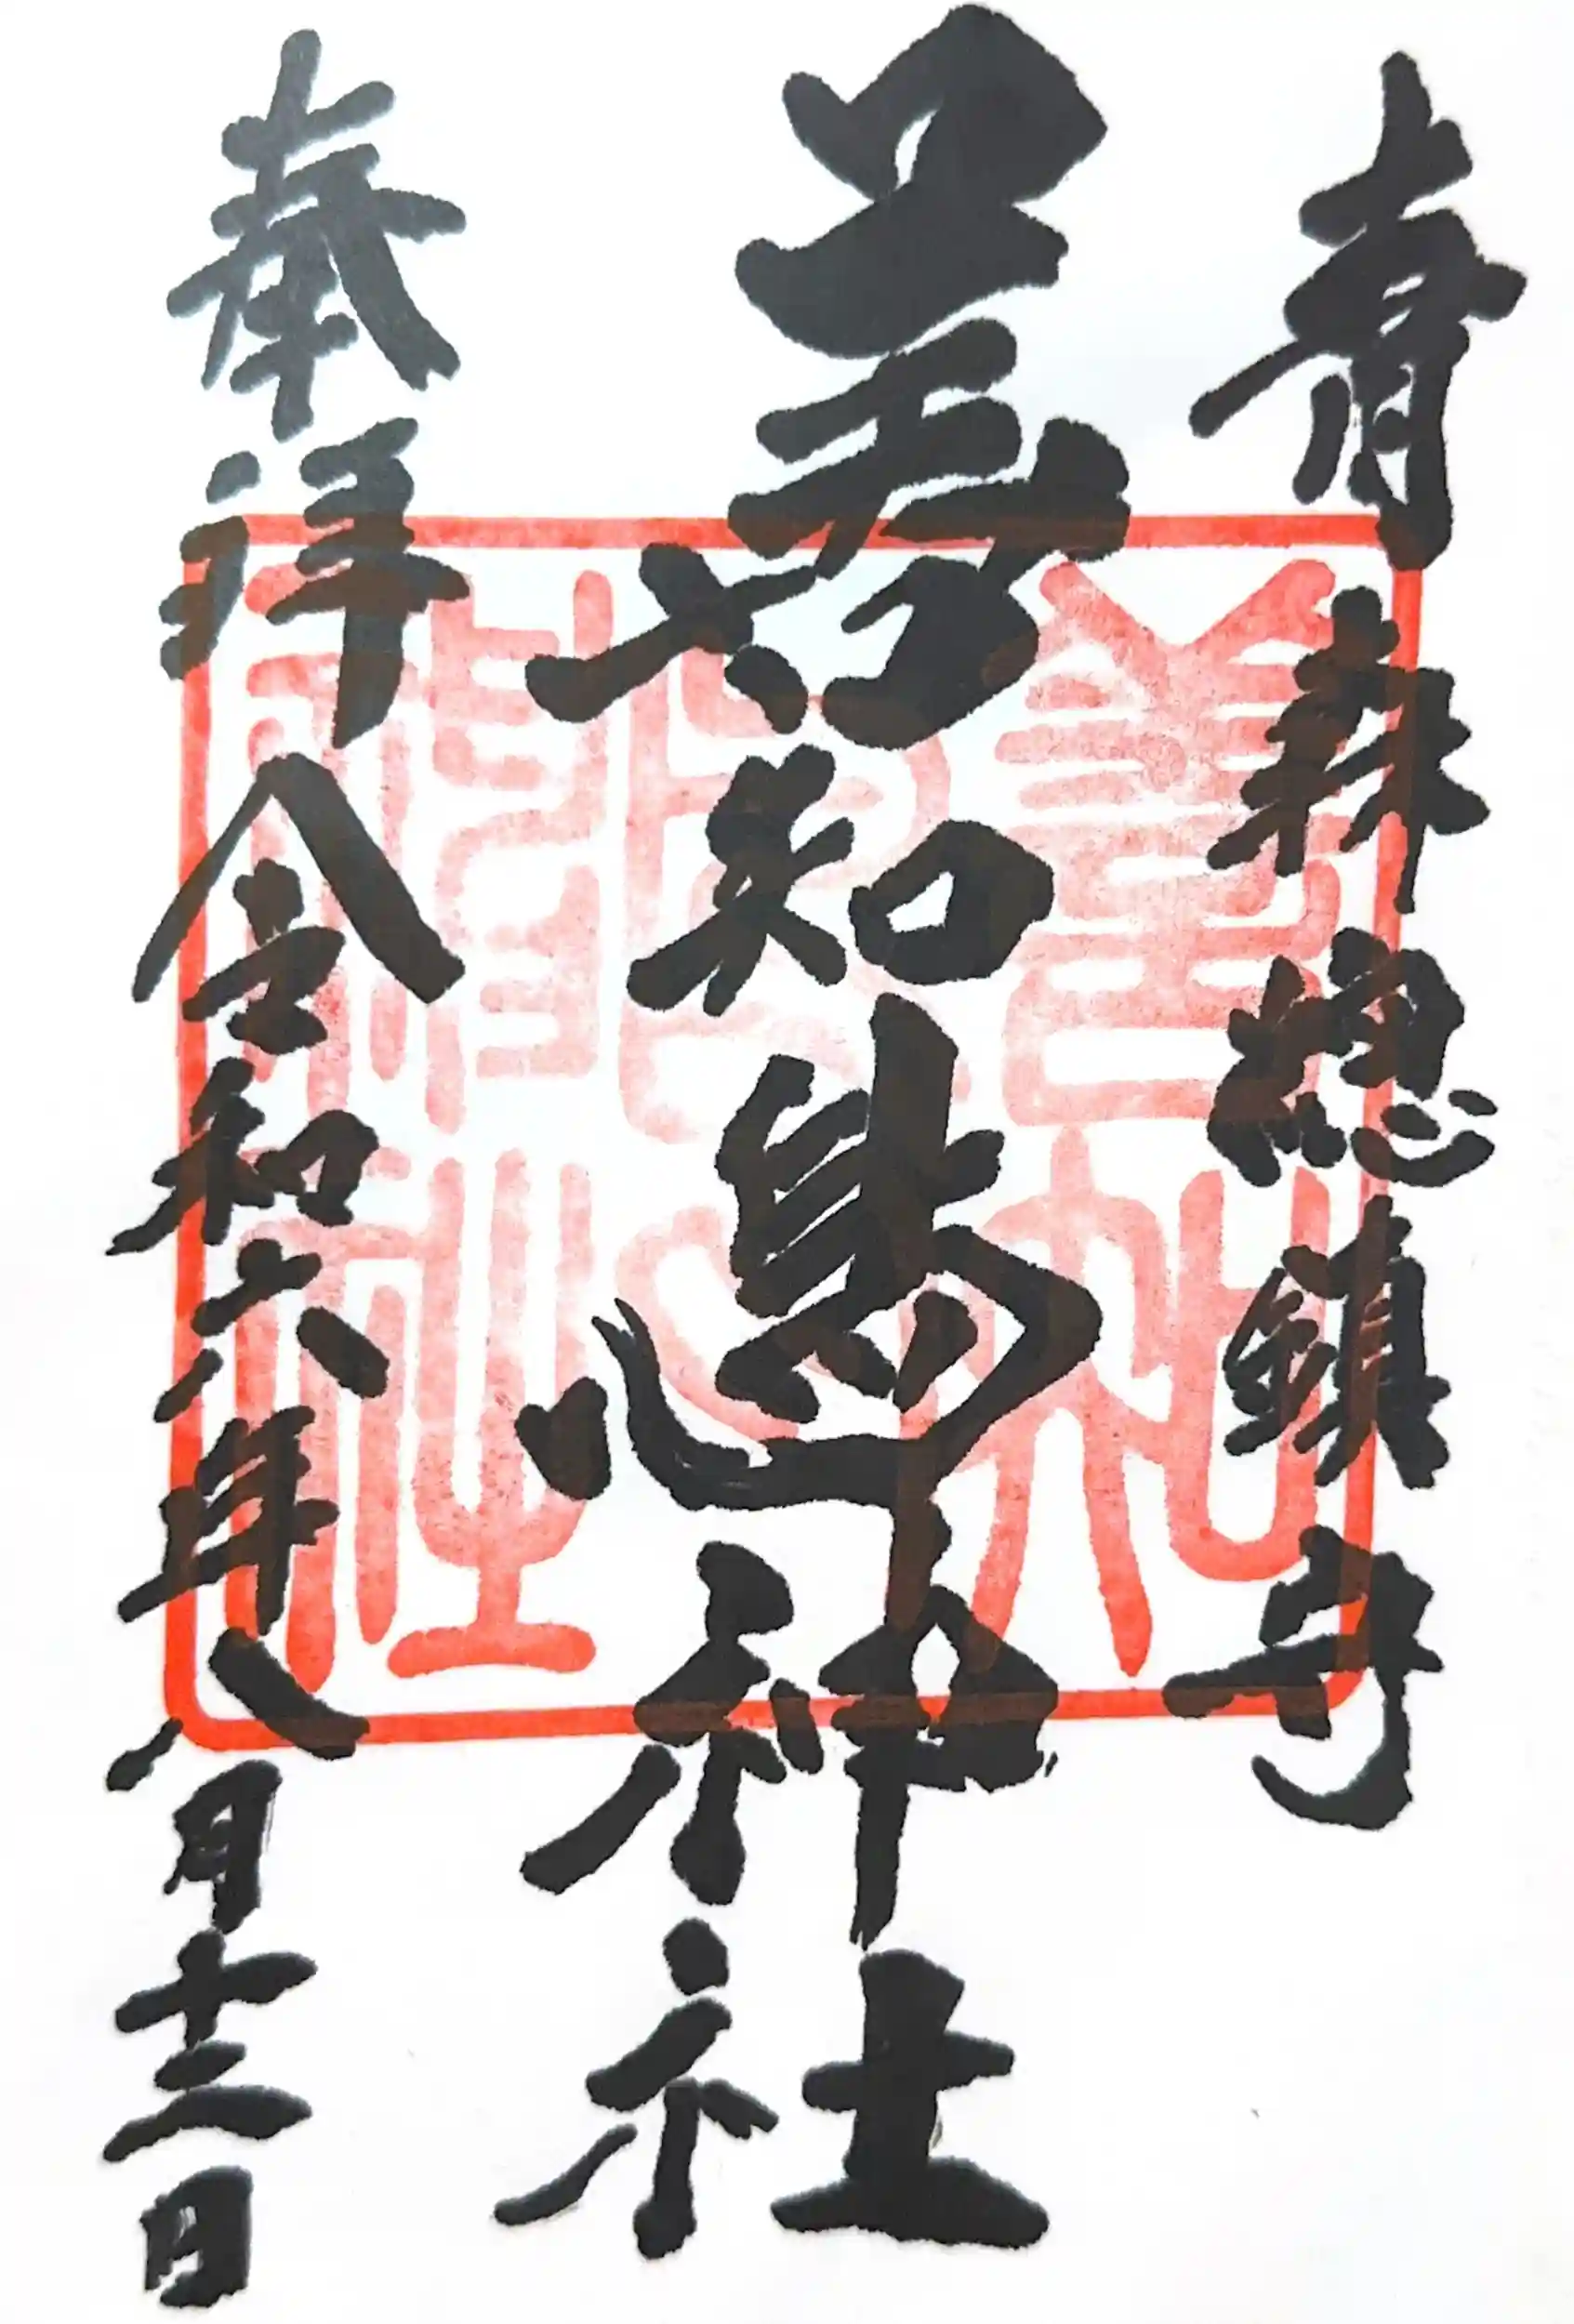 青森総鎮守
善知鳥神社
奉拝 令和六年八月十三日
善知鳥神社